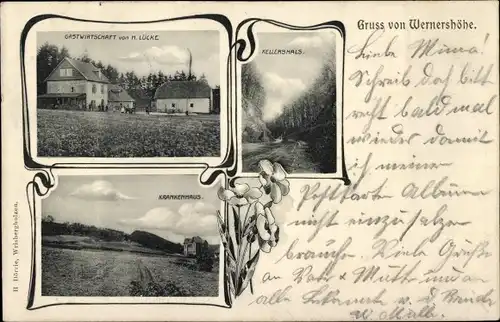 Gruss von Wernershöhe.
GASTWIRTSCHAFT von H. LÜCKE
KELLERSHALS.
KRANKENHAUS.
Liebe Mima!
Schreib doch bitte
recht bald mal
wieder damit
ich meine
Postkarten Album
nicht einzu
brauche. Viele Grüße
an Vater & Mutter und an
alle